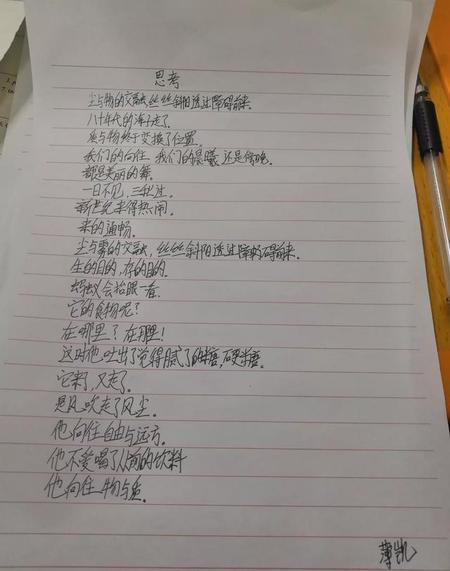 思考
尘与物的交融,丝丝斜阳透过障碍前来.
八十年代的浑子走了.
质与物终于变换了位置.
我们的向往 我们的晨曦,还是傍晚.
都是美丽的舞.
一日不见,三秋过.
新世纪来得热闹.
来的通畅.
尘与雾的交融,丝丝斜阳透过障碍前来.
生的目的,存的目的.
蚂蚁会抬眼一看.
它的食物呢?
在哪里?在那里!
这时他,吐出了觉得腻了的糖,硬糖.
它来了,又走了.
是风吹走了风尘.
他向往自由与远方.
他不爱喝了从前的饮料
他向往物与质.
薄凯